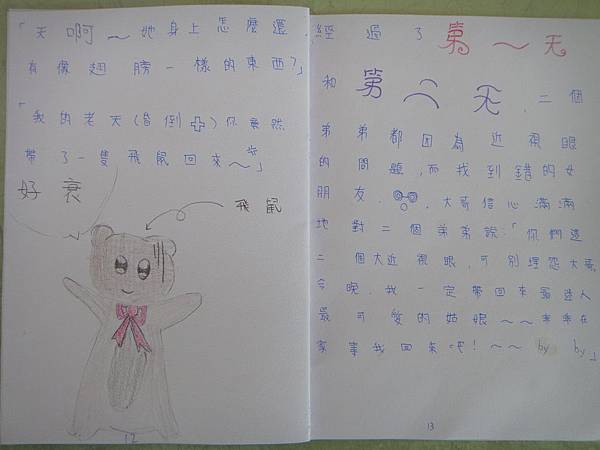 「天啊～她身上怎麼還
有像翅膀一樣的東西?」
「我的老天(昏倒)你竟然
帶了一隻飛鼠回來～」
好衰
飛鼠
12
經過了第一天
和第二天,二個
弟弟都因為近視眼
的問題,而找到錯的女
朋友.大哥信心滿滿
地對二個弟弟說:「你們這
二個大近視眼,可別埋怨大哥
今晚,我一定帶回來最迷人
最可愛的姑娘～～乖乖在
家等我回來吧!～～by by」
13